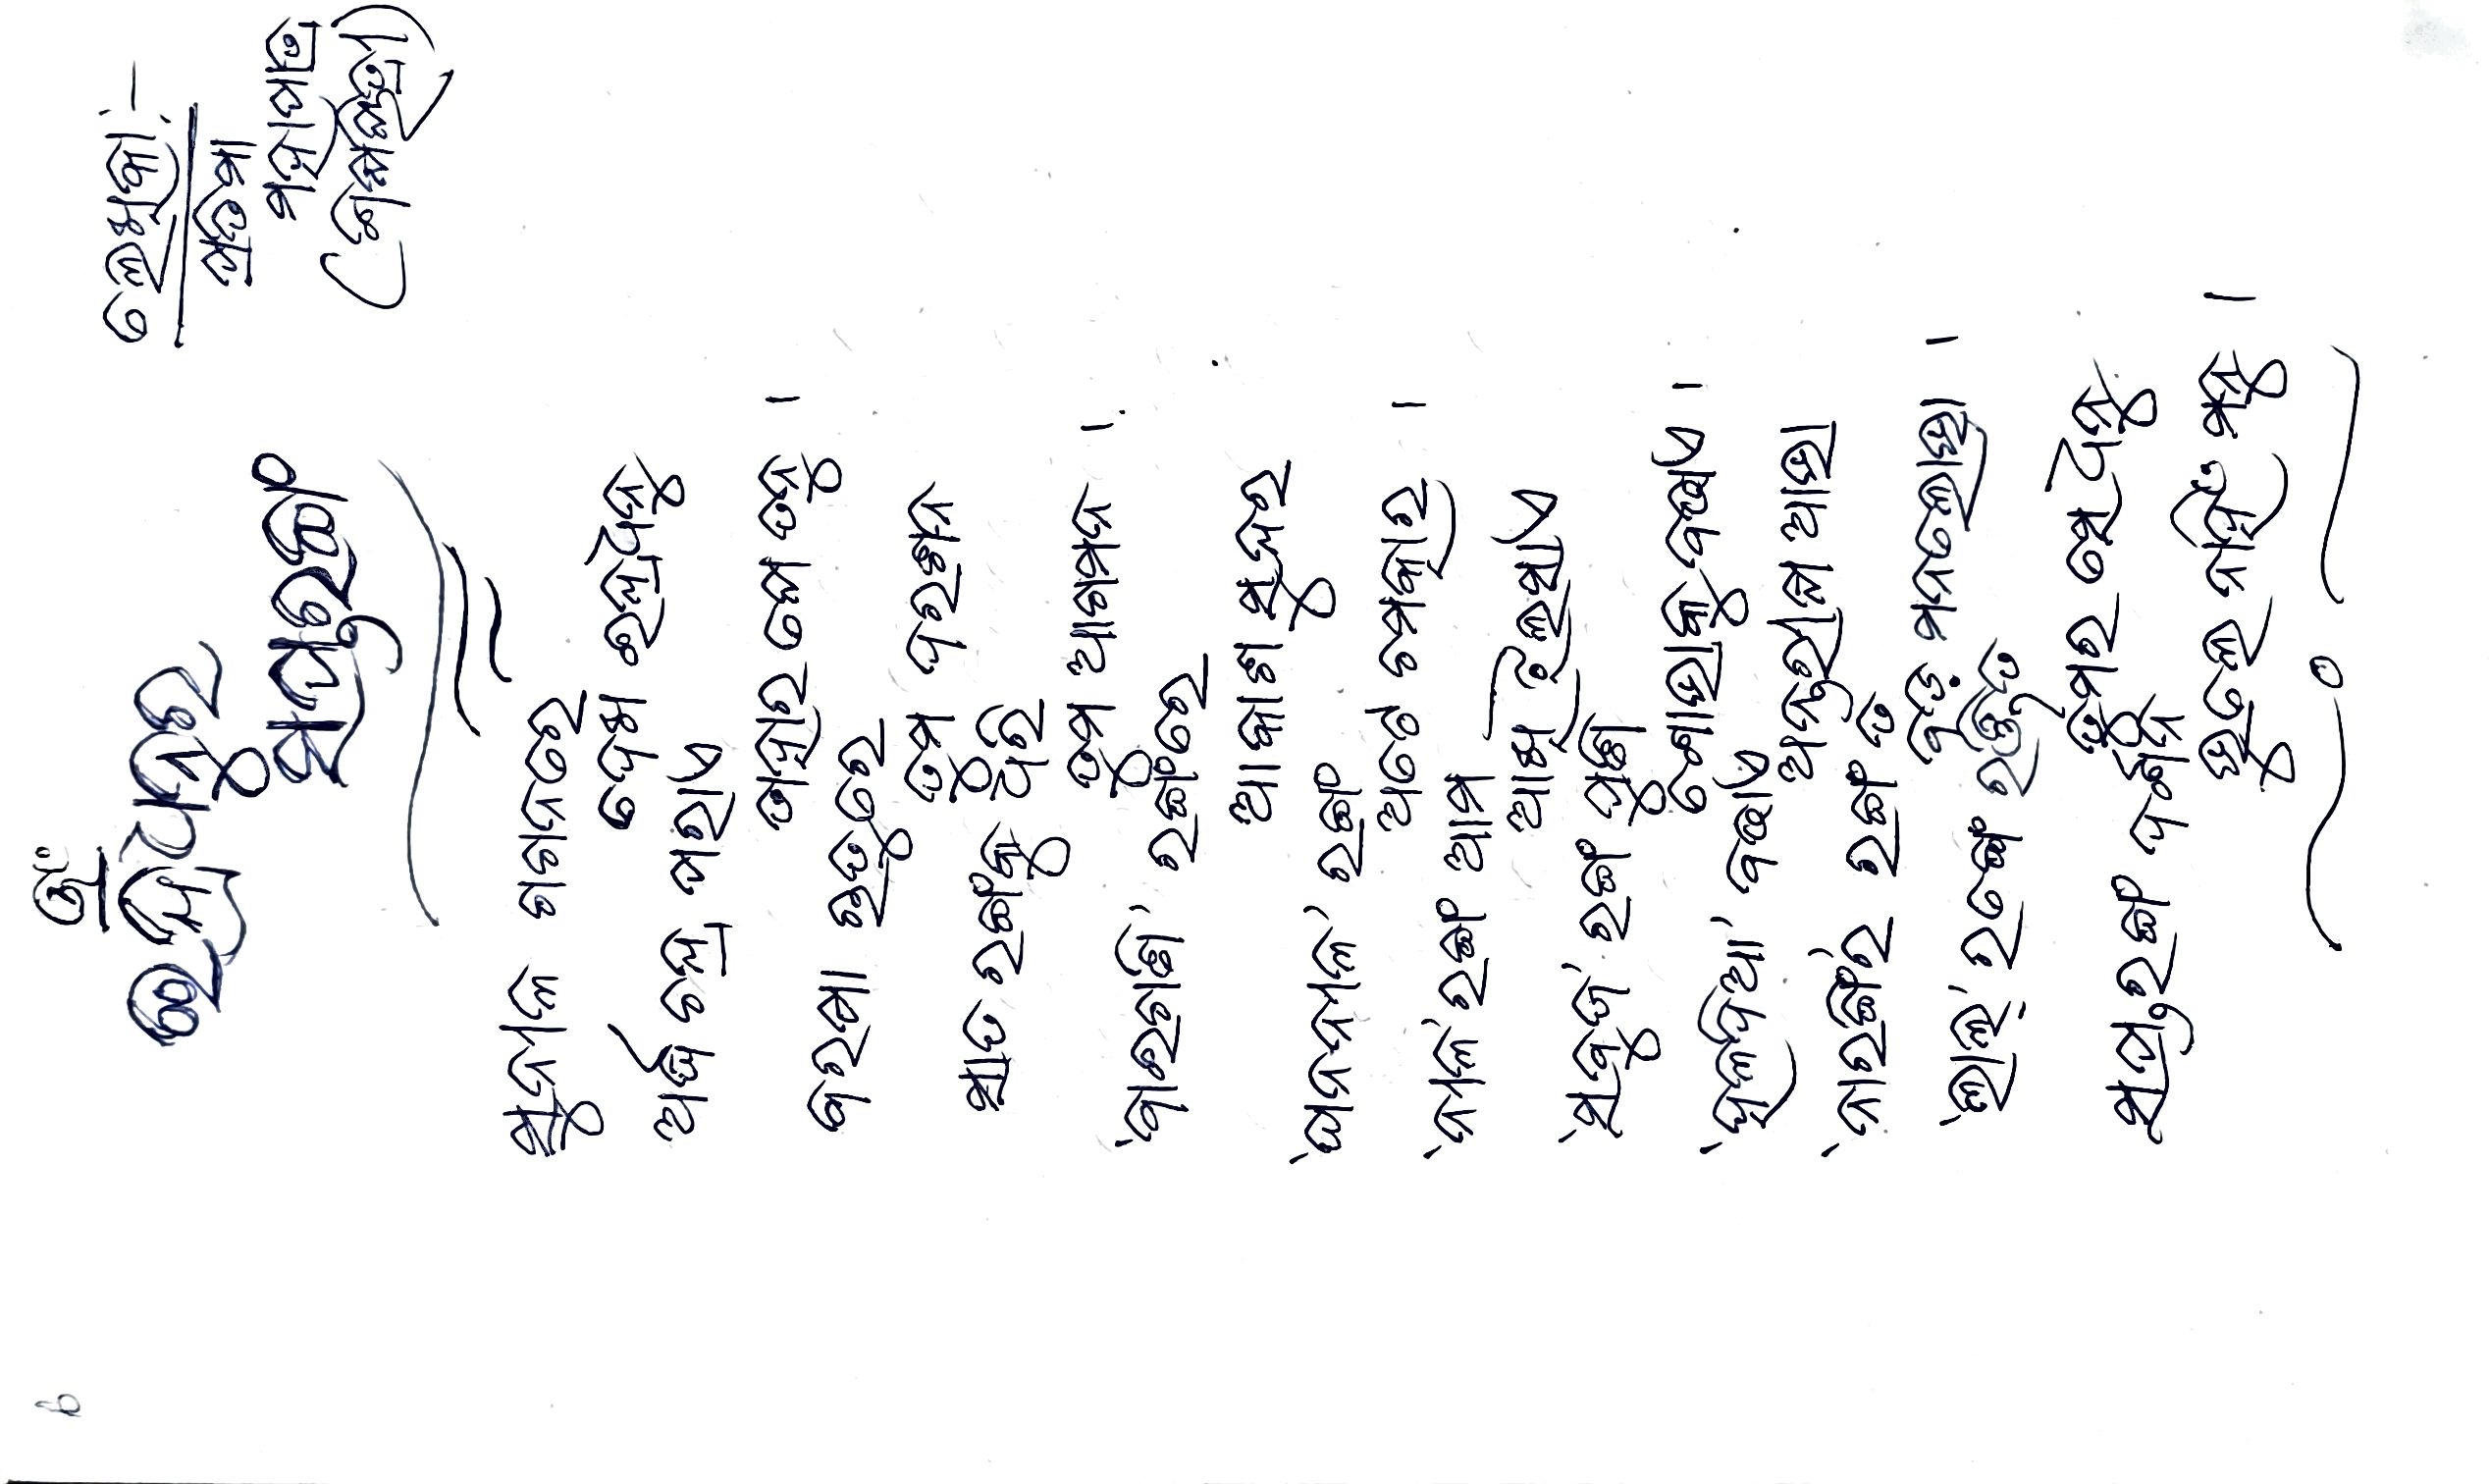 ଓଁ
ଇନ୍ଦ୍ରଧନୁର
ସପ୍ତରଙ୍ଗ
ଲେଖିକା:-
ପ୍ରତିମା
ମହାପାତ୍ର
(ଶିକ୍ଷୟିତ୍ରୀ)
ସୁନୀଳ ଗଗନରେ
ଦେଖ ଇନ୍ଦ୍ରଧନୁ
ଅର୍ଦ୍ଧ ଚନ୍ଦ୍ର ପରାଏ
ତାହାର ସେ ତନୁ ।
ବରଷା ଋତୁରେ
ତୁମ ଦରଶନ
ସାତ ରଙ୍ଗକୁ ଧରି
ତୁମ ଆଗମନ ।
'ବାଇଗଣି' ରଙ୍ଗରେ
ଆକାଶ ସୁନ୍ଦର
'ଘନନୀଳ' ରଙ୍ଗ
ଅଟେ ଚମତ୍କାର ।
'ନୀଳ' ରଙ୍ଗ ଆମ
ଆଖି ଝଲସାଏ
'ସବୁଜ' ରଙ୍ଗ ପୁଣି
ଶୋଭାକୁ ବଢାଏ ।
'ହଳଦିଆ' ବଢାଏ
ଅନ୍ତରୀକ୍ଷ ଆଭା
'ନାରଙ୍ଗି'ର ରଙ୍ଗ ତ
ବଡ଼ ମନଲୋଭା ।
'ଲାଲ୍' ରଙ୍ଗେ ରଞ୍ଜିତ
ତୁମର ସେ ଧନୁ
ସପ୍ତରଙ୍ଗ ଦର୍ଶନ
ଭୁଲେ ନାହିଁ ମନୁ ।